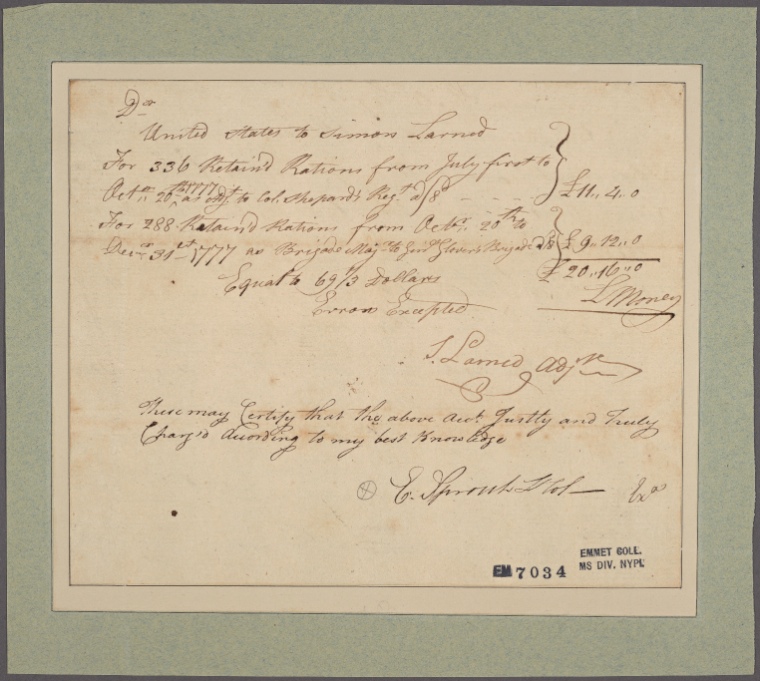 Dr
United States to Simon Larned
For 336 Retain'd Rations from July first to
Octr 20th 1777 as adjt to Col. Shepard's Regt a/8d £11,,4,,0
For 288 Retain'd Rations from Octr 20th to
Decr 31st 1777 as Brigade Majr to Genl Glover's Brigade a/8 £9,,12,,0
£20,,16,,0
Equal to 69 1/3 Dollars LMoney
Errors Excepted
S. Larned Adjt
These may Certify that the above Acct Justly and Truly
Charg'd Acording to my best Knowledge
E. Sprout Lt Col Exd
EM 7034
EMMET COLL.
MS DIV. NYPL